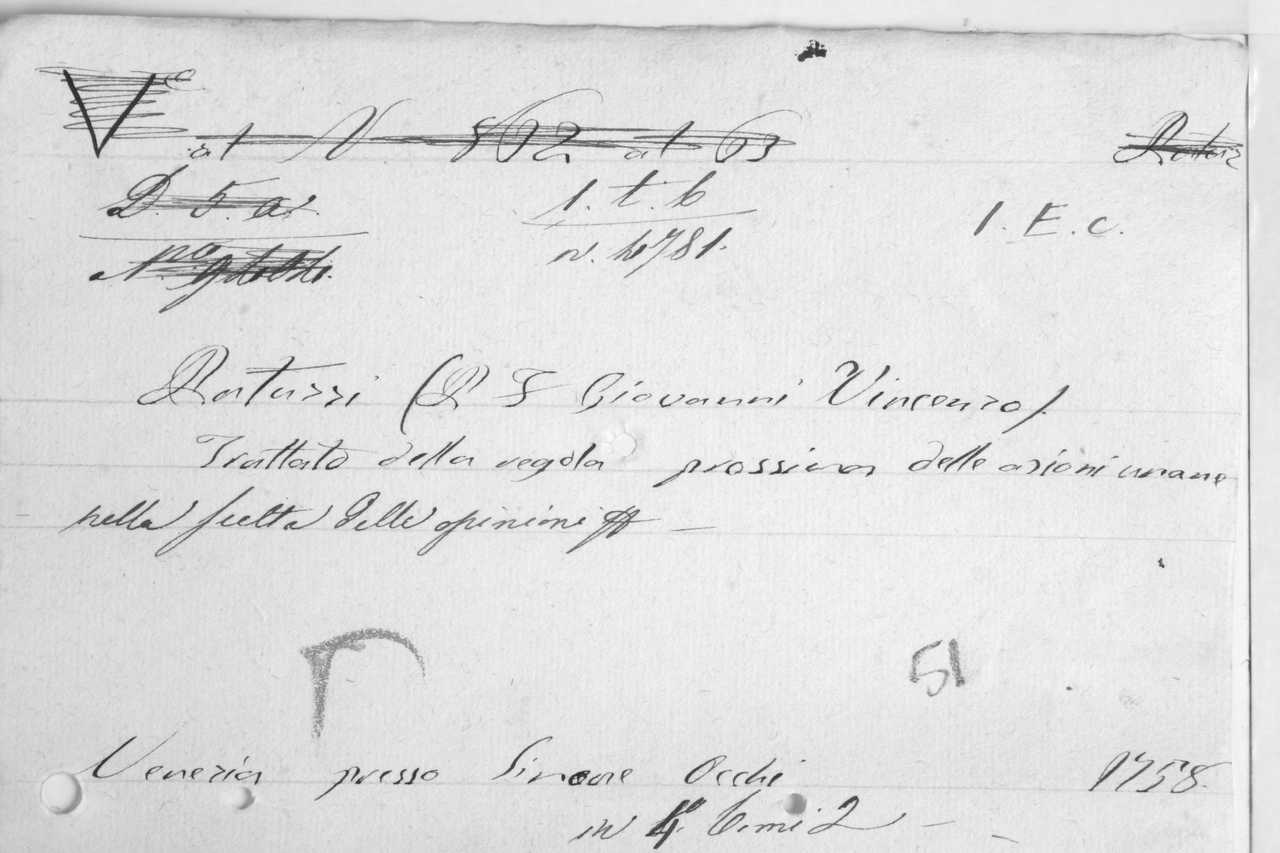 V
at N 562 at 63
D. 5. ar. 1. t. b 1. E. C.
N.ro n. 4781.
Ratuzzi (P F Giovanni Vincenzo).
Trattato della regola prossima delle azioni umane
nella scelta delle opinioni
51
Venezia presso Simone Occhi 1758.
in 4.o tomi 2 -